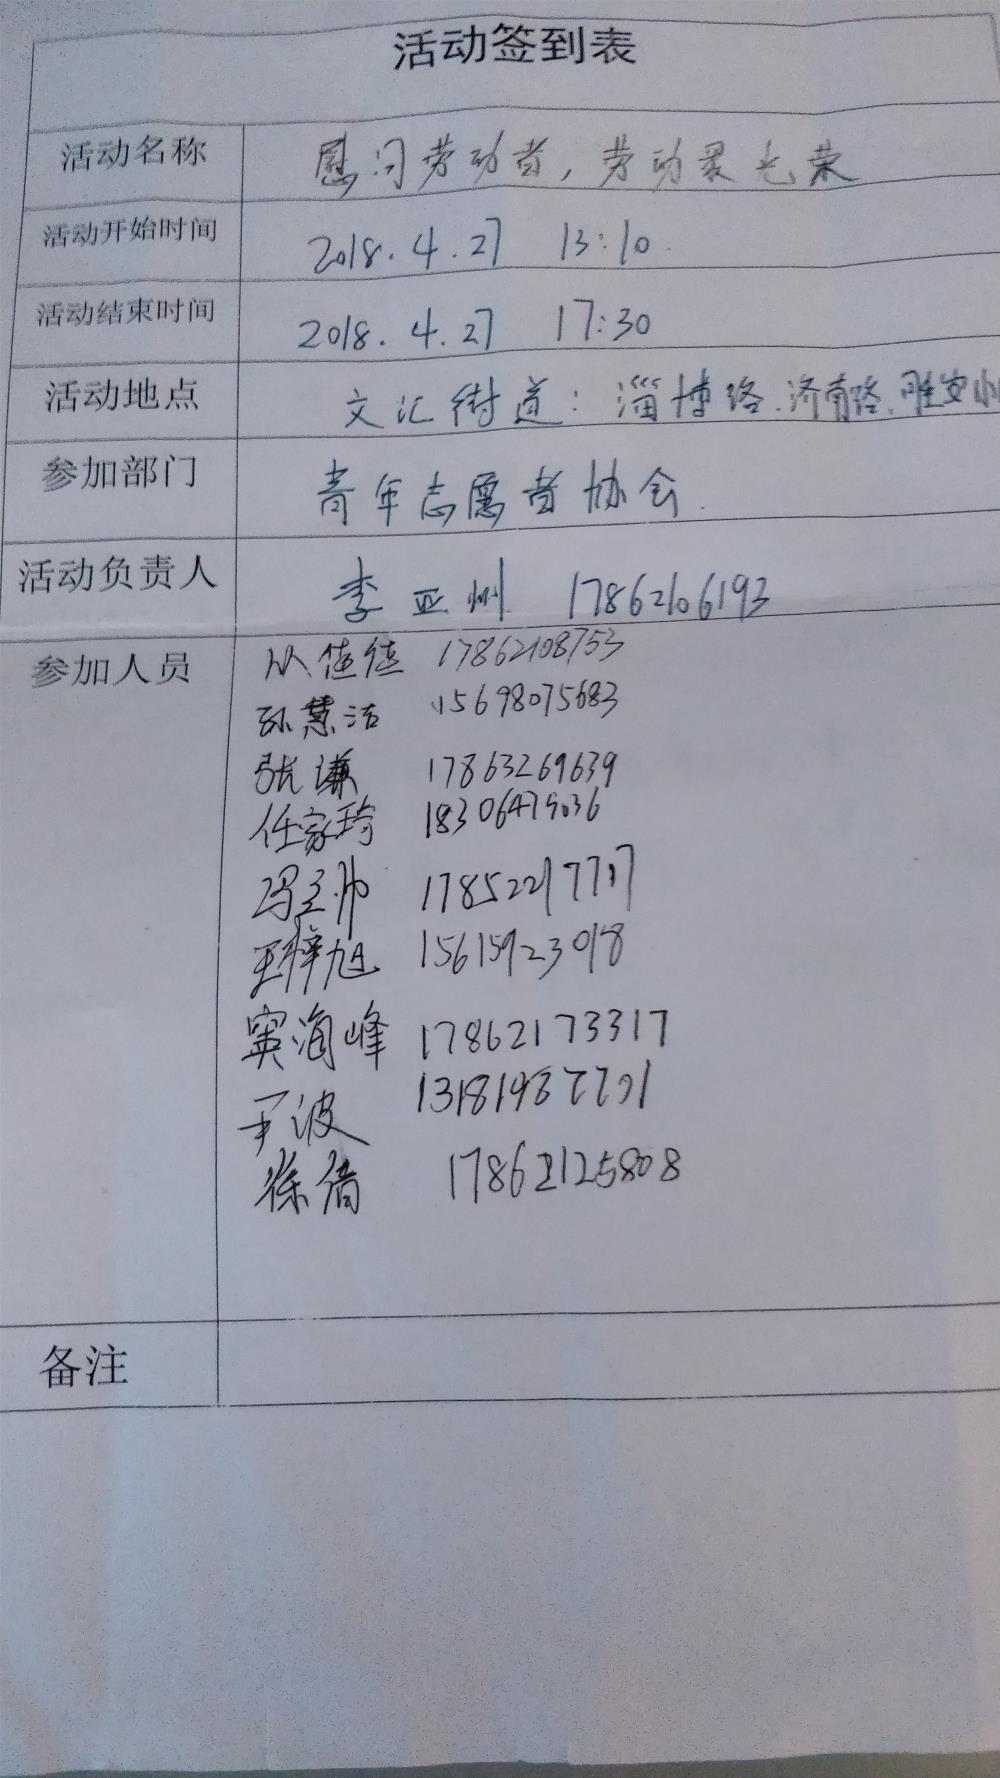 活动签到表
活动名称 慰问劳动者，劳动最光荣
活动开始时间 2018.4.27 13:10
活动结束时间 2018.4.27 17:30
活动地点 文汇街道：淄博路、济南路、
参加部门 青年志愿者协会.
活动负责人 李亚州 17862106193
参加人员 17862108753
孙慧洁 15698075683
张谦 17863269639
任家琦 18306479036
冯立帅 17852217717
王梓旭 15615923018
窦海峰 17862173317
波 13181987701
徐倩 17862125808
备注